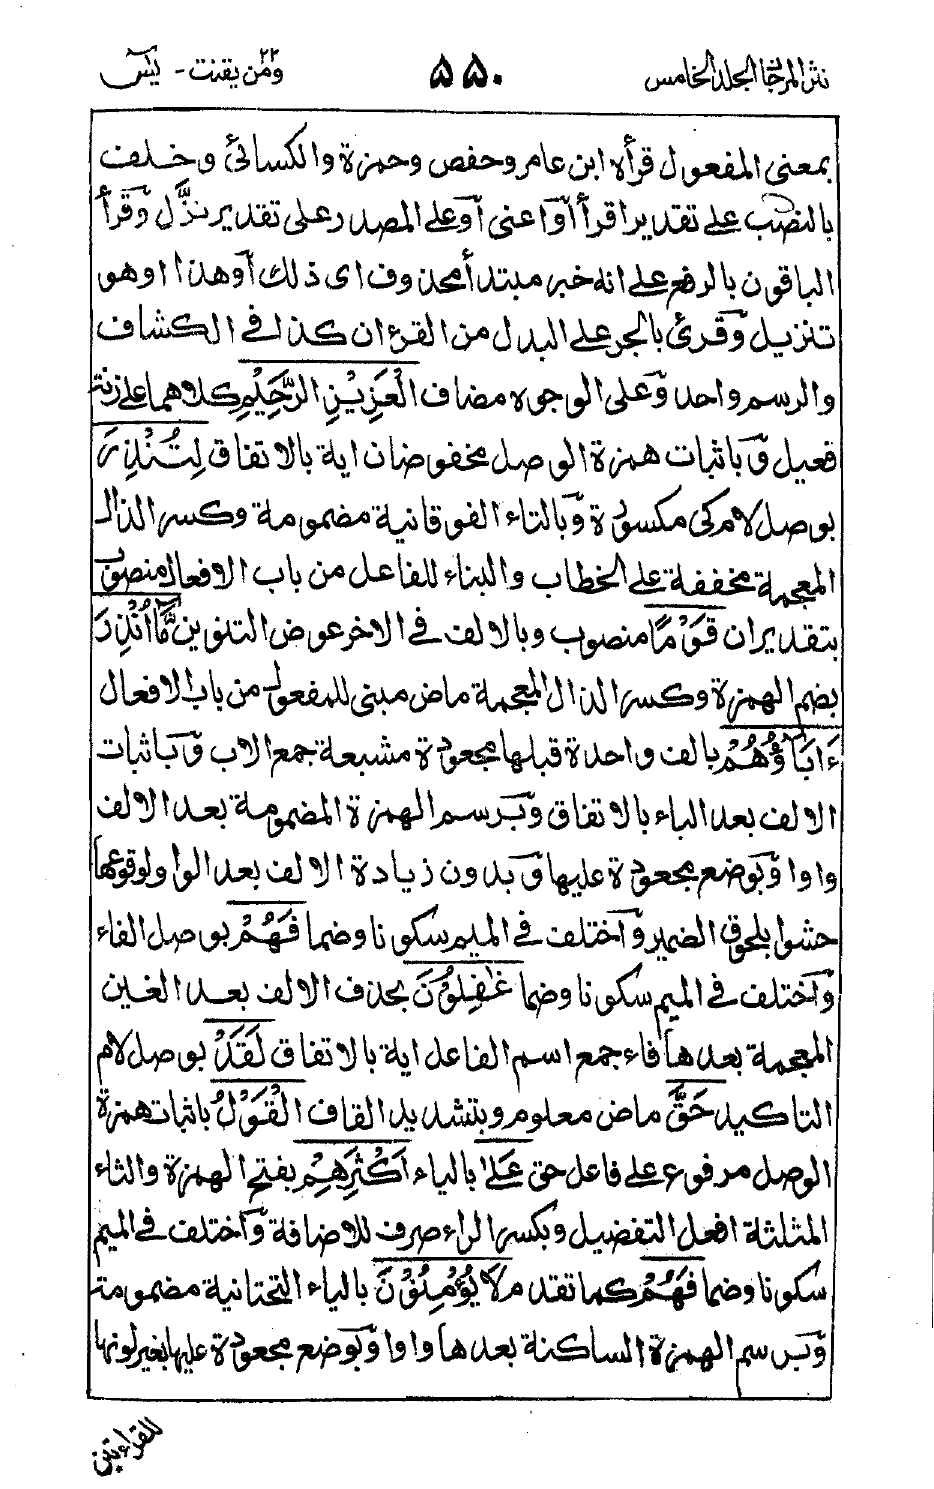 نثر المرجان المجلد الخامس
٥٥٠
ومن يقنت ٢٢ - يٰسٓ
بمعنى المفعول قرأه ابن عامر وحفص وحمزة والكسائى وخلف
بالنصب على تقدير اقرأ او اعنى او على المصدر على تقدير نزّل وقرأ
الباقون بالرفع على انه خبر مبتدأ محذوف اى ذلك او هذا او هو
تنزيل وقرئ بالجر على البدل من القرءان كذا فى الكشاف
والرسم واحد وعلى الوجوه مضاف الْعَزِيْزِ الرَّحِيْمِ كلاهما على زنة
فعيل وباثبات همزة الوصل مخفوضان اية بالاتفاق لِتُنْذِرَ
بوصل لام كى مكسورة وبالتاء الفوقانية مضمومة وكسر الذال
المعجمة مخففة على الخطاب والبناء للفاعل من باب الافعال منصوب
بتقدير ان قَوْمًا منصوب وبالالف فى الاخر عوض التنوين مَّا اُنْذِرَ
بضم الهمزة وكسر الذال المعجمة ماض مبنى للمفعول من باب الافعال
ءَابَاؤُهُمْ بالف واحدة قبلها مجعودة مشبعة جمع الاب وباثبات
الالف بعد الباء بالاتفاق وبرسم الهمزة المضمومة بعد الالف
واوا وبوضع مجعودة عليها وبدون زيادة الالف بعد الواو لوقوعها
حشوا بلحوق الضمير واختلف فى الميم سكونا وضما فَهُمْ بوصل الفاء
واختلف فى الميم سكونا وضما غٰفِلُوْنَ بحذف الالف بعد الغين
المعجمة بعدها فاء جمع اسم الفاعل اية بالاتفاق لَقَدْ بوصل لام
التاكيد حَقَّ ماض معلوم وبتشديد القاف الْقَوْلُ باثبات همزة
الوصل مرفوع على فاعل حق عَلٰى بالياء اَكْثَرِهِمْ بفتح الهمزة والثاء
المثلثة افعل التفضيل وبكسر الراء صرف للاضافة واختلف فى الميم
سكونا وضما فَهُمْ كما تقدم لَا يُؤْمِنُوْنَ بالياء التحتانية مضمومة
وبرسم الهمزة الساكنة بعدها واوا وبوضع مجعودة عليها بغير لونها
للقراءتين